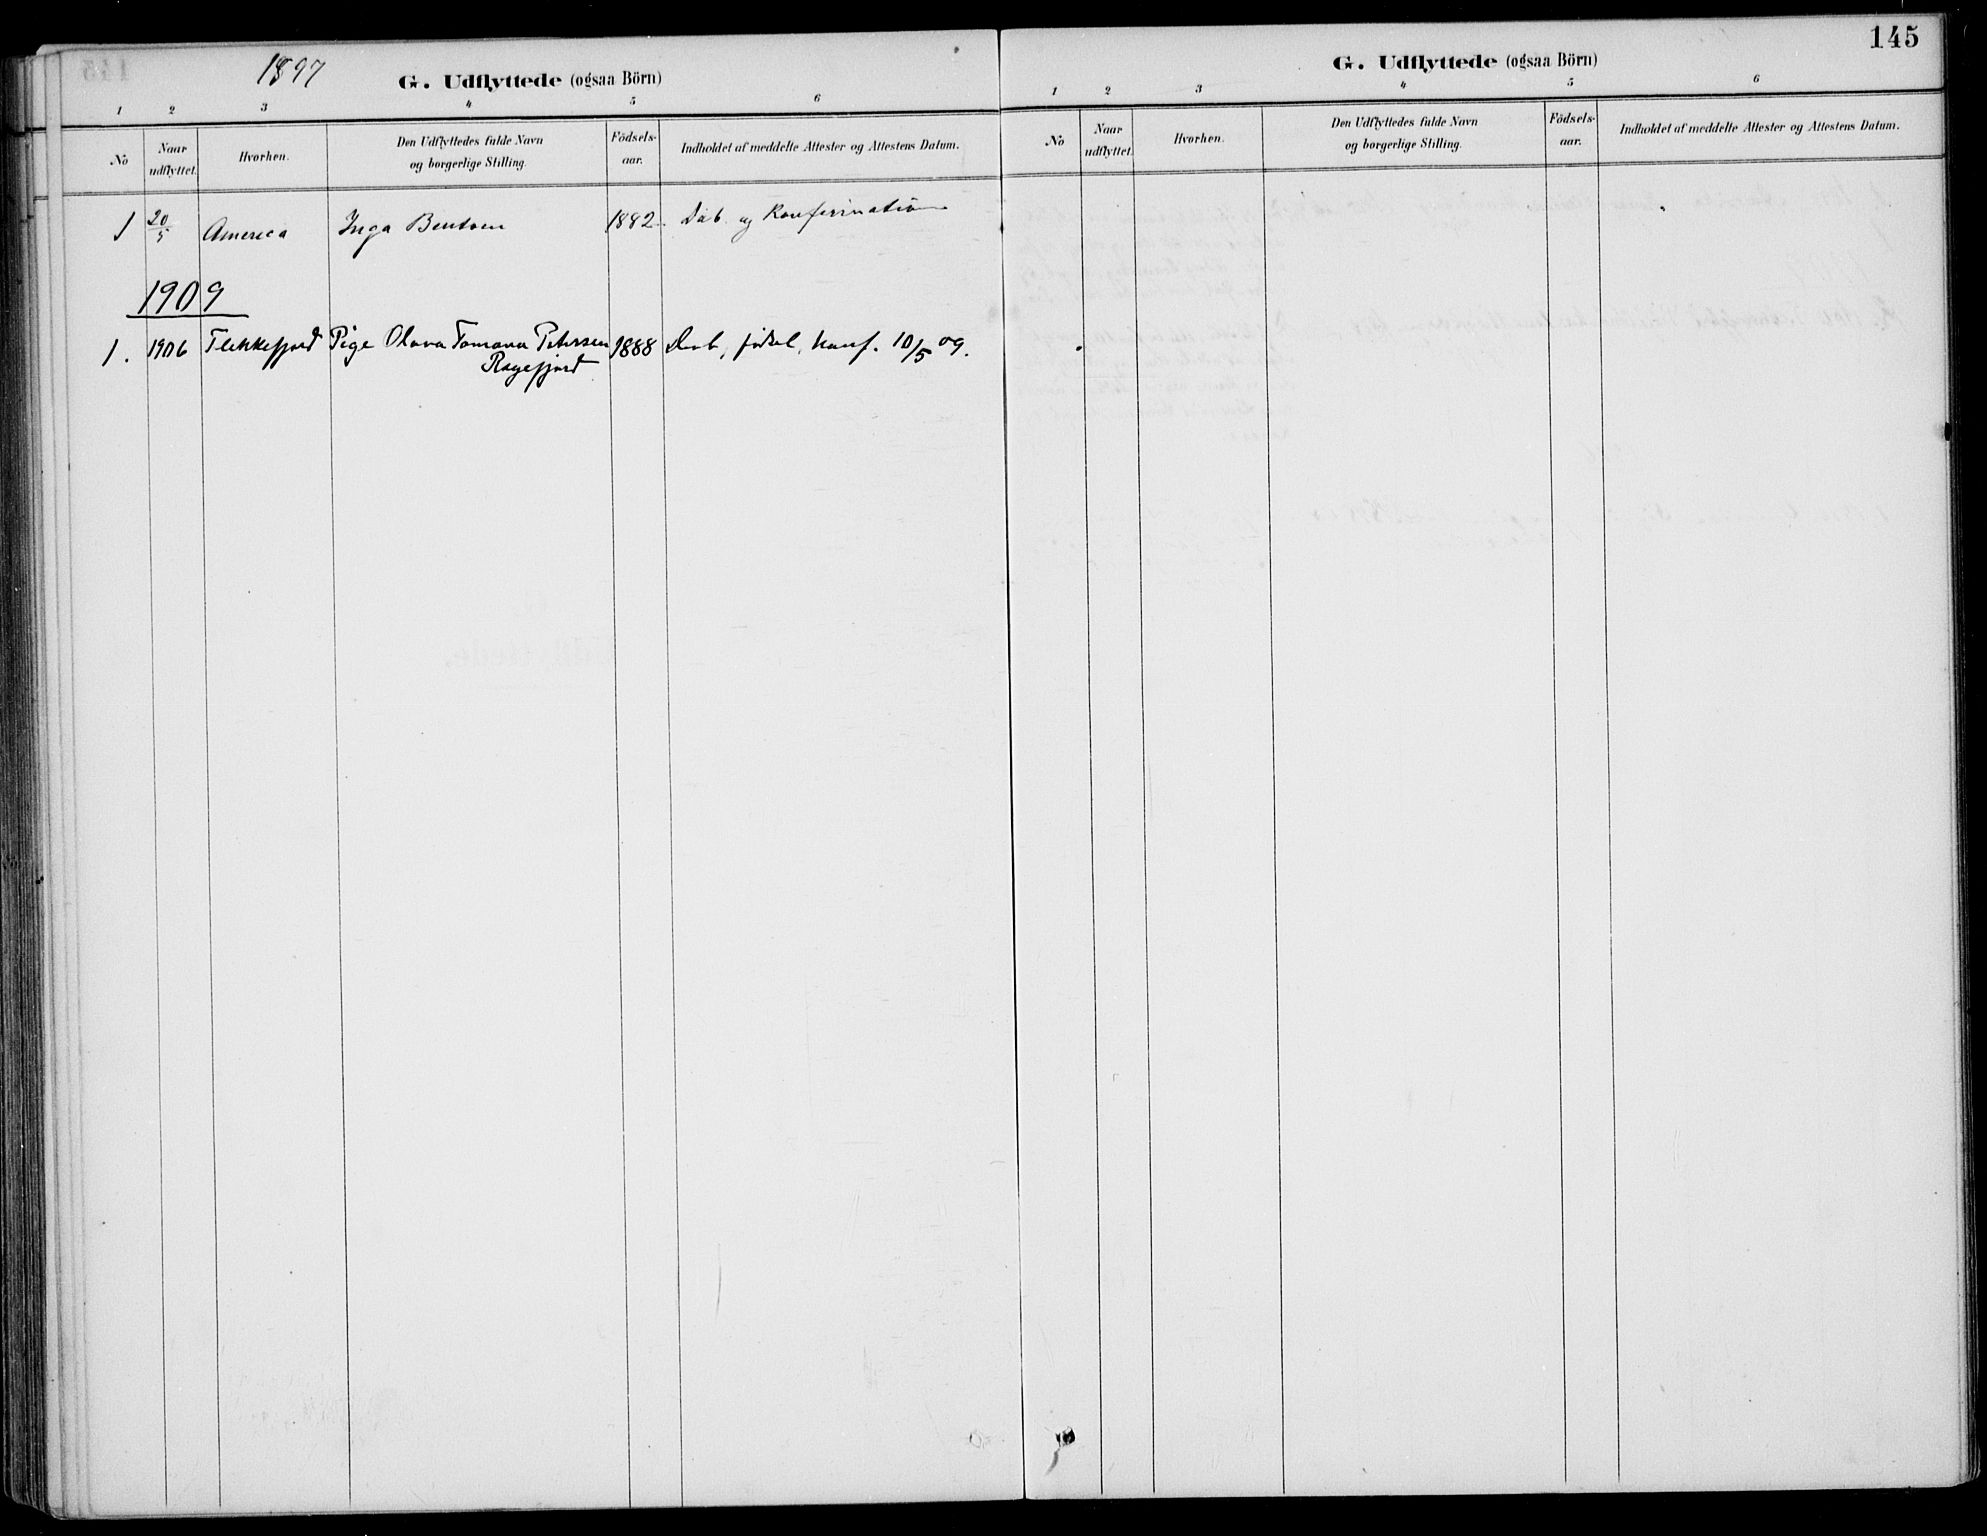 1897
G. Udflyttede (ogsaa Börn)
1 2 3 4 5 6
No
Naar udflyttet.
Hvorhen.
Den Udflyttedes fulde Navn
og borgerlige Stilling.
Födsels-
aar.
Indholdet af meddelte Attester og Attestens Datum.
1 20/5 America Inga Bentsen 1882 Dåb. og Konfirmation
1909
1. 1906 Flekkefjord Pige Olava Tomava Petersen 1888 Daab, födsel, Konf. 10/5 09.
Ragefjord
145
G. Udflyttede (ogsaa Börn)
1 2 3 4 5 6
No
Naar
udflyttet.
Hvorhen.
Den Udflyttedes fulde Navn
og borgerlige Stilling.
Födsels-
aar.
Indholdet af meddelte Attester og Attestens Datum.